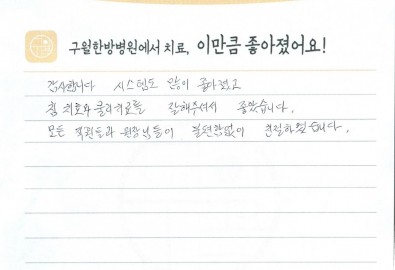 구월한방병원에서 치료, 이만큼 좋아졌어요!
감사합니다 시스템도 많이 좋아졌고
침 치료와 물리치료를 잘해주셔서 좋았습니다.
모든 직원들과 원장님들이 불편함없이 친절하셨습니다.